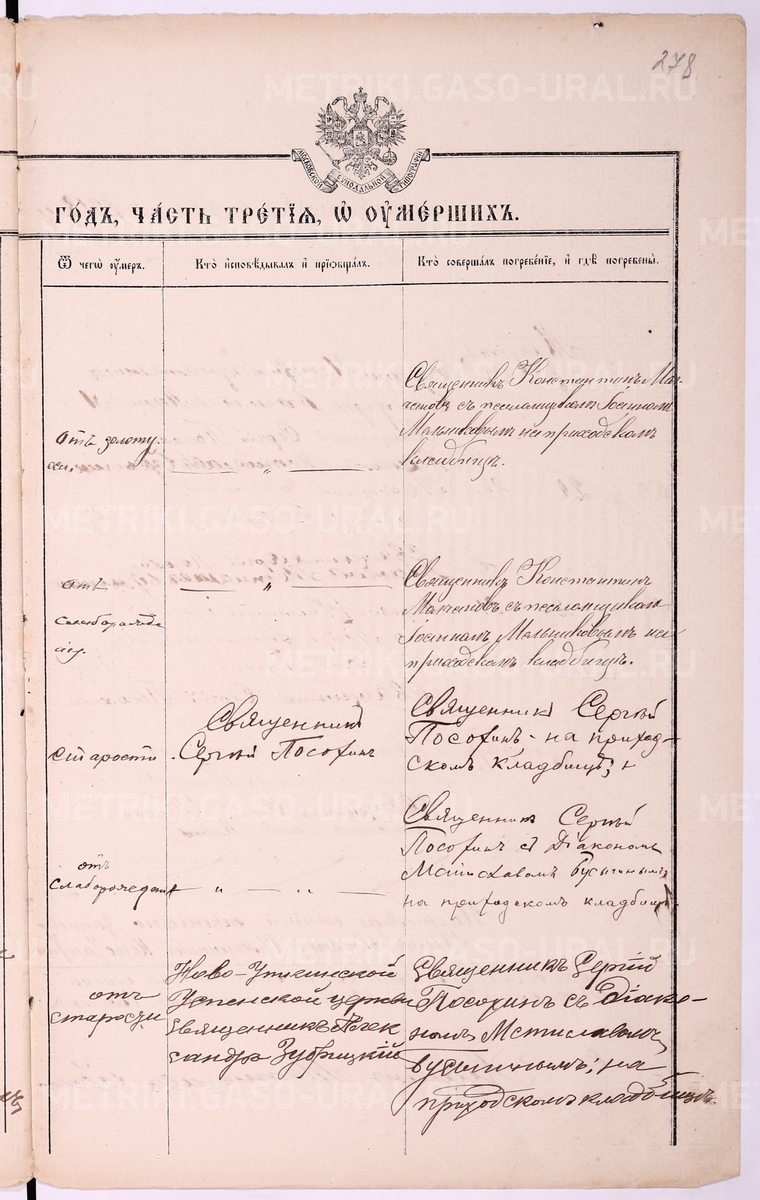 278
МОСКОВСКОЙ СѴНОДАЛЬНОЙ ТИПОГРАФІИ
METRIKI.GASO-URAL.RU
го́дъ, ча́сть тре́тїѧ, ѡ҆ ᲂу҆ме́ршихъ.
Ѿ чегѡ̀ ᲂу҆́меръ.
Кто̀ и҆сповѣ́дывалъ и҆ прїѻбща́лъ.
Кто̀ соверша́лъ погребе́нїе, и҆ гдѣ̀ погребены̀.
Отъ золоту-
хи.
— „ —
Священникъ Константинъ
съ псаломщикомъ Іоанномъ
Мельниковымъ на приходскомъ
кладбищѣ.
отъ
— „ —
Священникъ Константинъ
съ псаломщикомъ
Іоанномъ Мельниковымъ на
приходскомъ кладбищѣ.
старости
Священникъ
Сергѣй Посохинъ
Священникъ Сергѣй
Посохинъ на приход-
скомъ кладбищѣ
отъ
слаборожденія
— „ — „ —
Священникъ Сергѣй
Посохинъ съ Діакономъ
Мстиславомъ Бусыгинымъ,
на приходскомъ кладбищѣ
отъ
старости
Ново-Уткинской
Успенской церкви
священникъ Алек
сандръ Зубрицкій
Священникъ Сергій
Посохинъ съ Діако-
номъ Мстиславомъ
Бусыгинымъ; на
приходскомъ кладбищѣ.